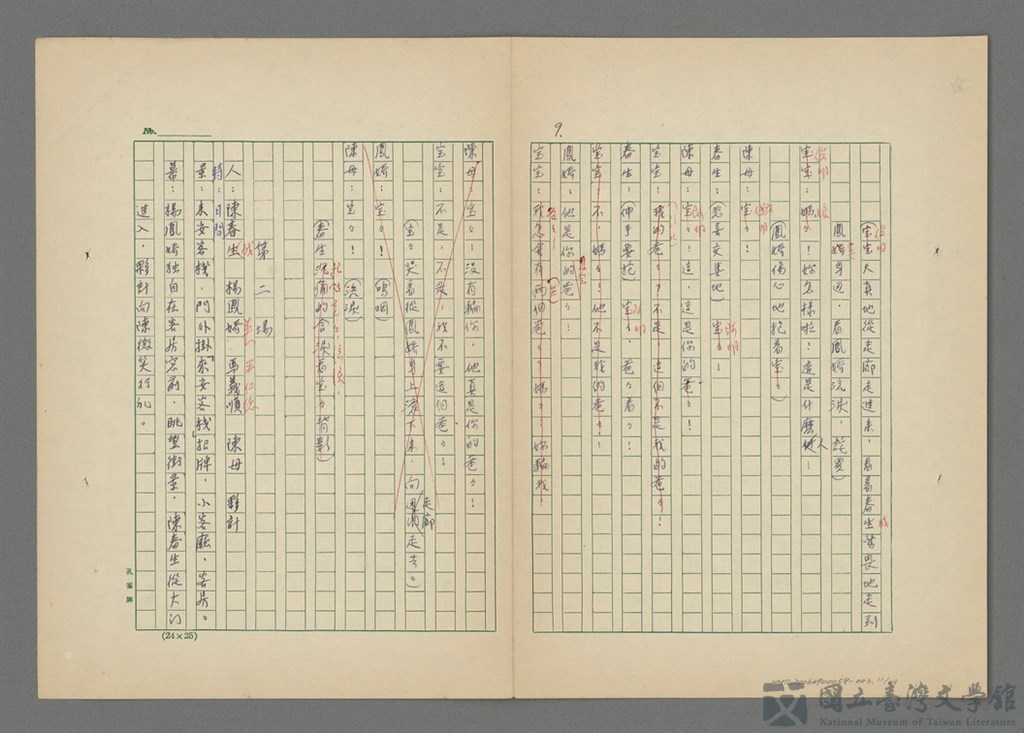 9.
(宝宝天真地從走廊走進來，看着春生畏地走到
鳳嬌身边，看鳳嬌流淚，詫異)
宝宝：媽！妳怎樣啦！這是什麼人！
(鳳嬌傷心地抱着宝々)
陳母：宝々！
春生：悲喜交集地)宝々！
陳母：宝々！這，這是你的爸々！
宝宝：我的爸々！不是！這個不是我的爸々！
春生：(伸手要抱)宝々，爸々看々！
宝宝：不，媽々！他不是我的爸々！
鳳嬌：他是你的爸々！
宝宝：我怎會有兩個爸々！媽々！妳騙我！
陳母：宝々！沒有騙你，他真是你的爸々！
宝宝：不是，不是，我不要這個爸々！
(宝々哭着從鳳嬌身上溜下來，向走廊走去。)
鳳嬌：宝々！(嗚咽)
陳母：宝々！(流淚)
(春生沉痛的含淚看宝々背影)
第二場
人：陳春生 楊鳳嬌 王仁德 陳母 夥計
時：日間
景：來安客棧，門外掛「來安客棧」招牌，小客廳，客房。
幕：楊鳳嬌独自在客房窗前，眺望街景，陳春生從大门
進入，夥計向陳微笑行礼。
No.
(24×25)
孔雀牌
國立臺灣文學館
National Museum of Taiwan Literature